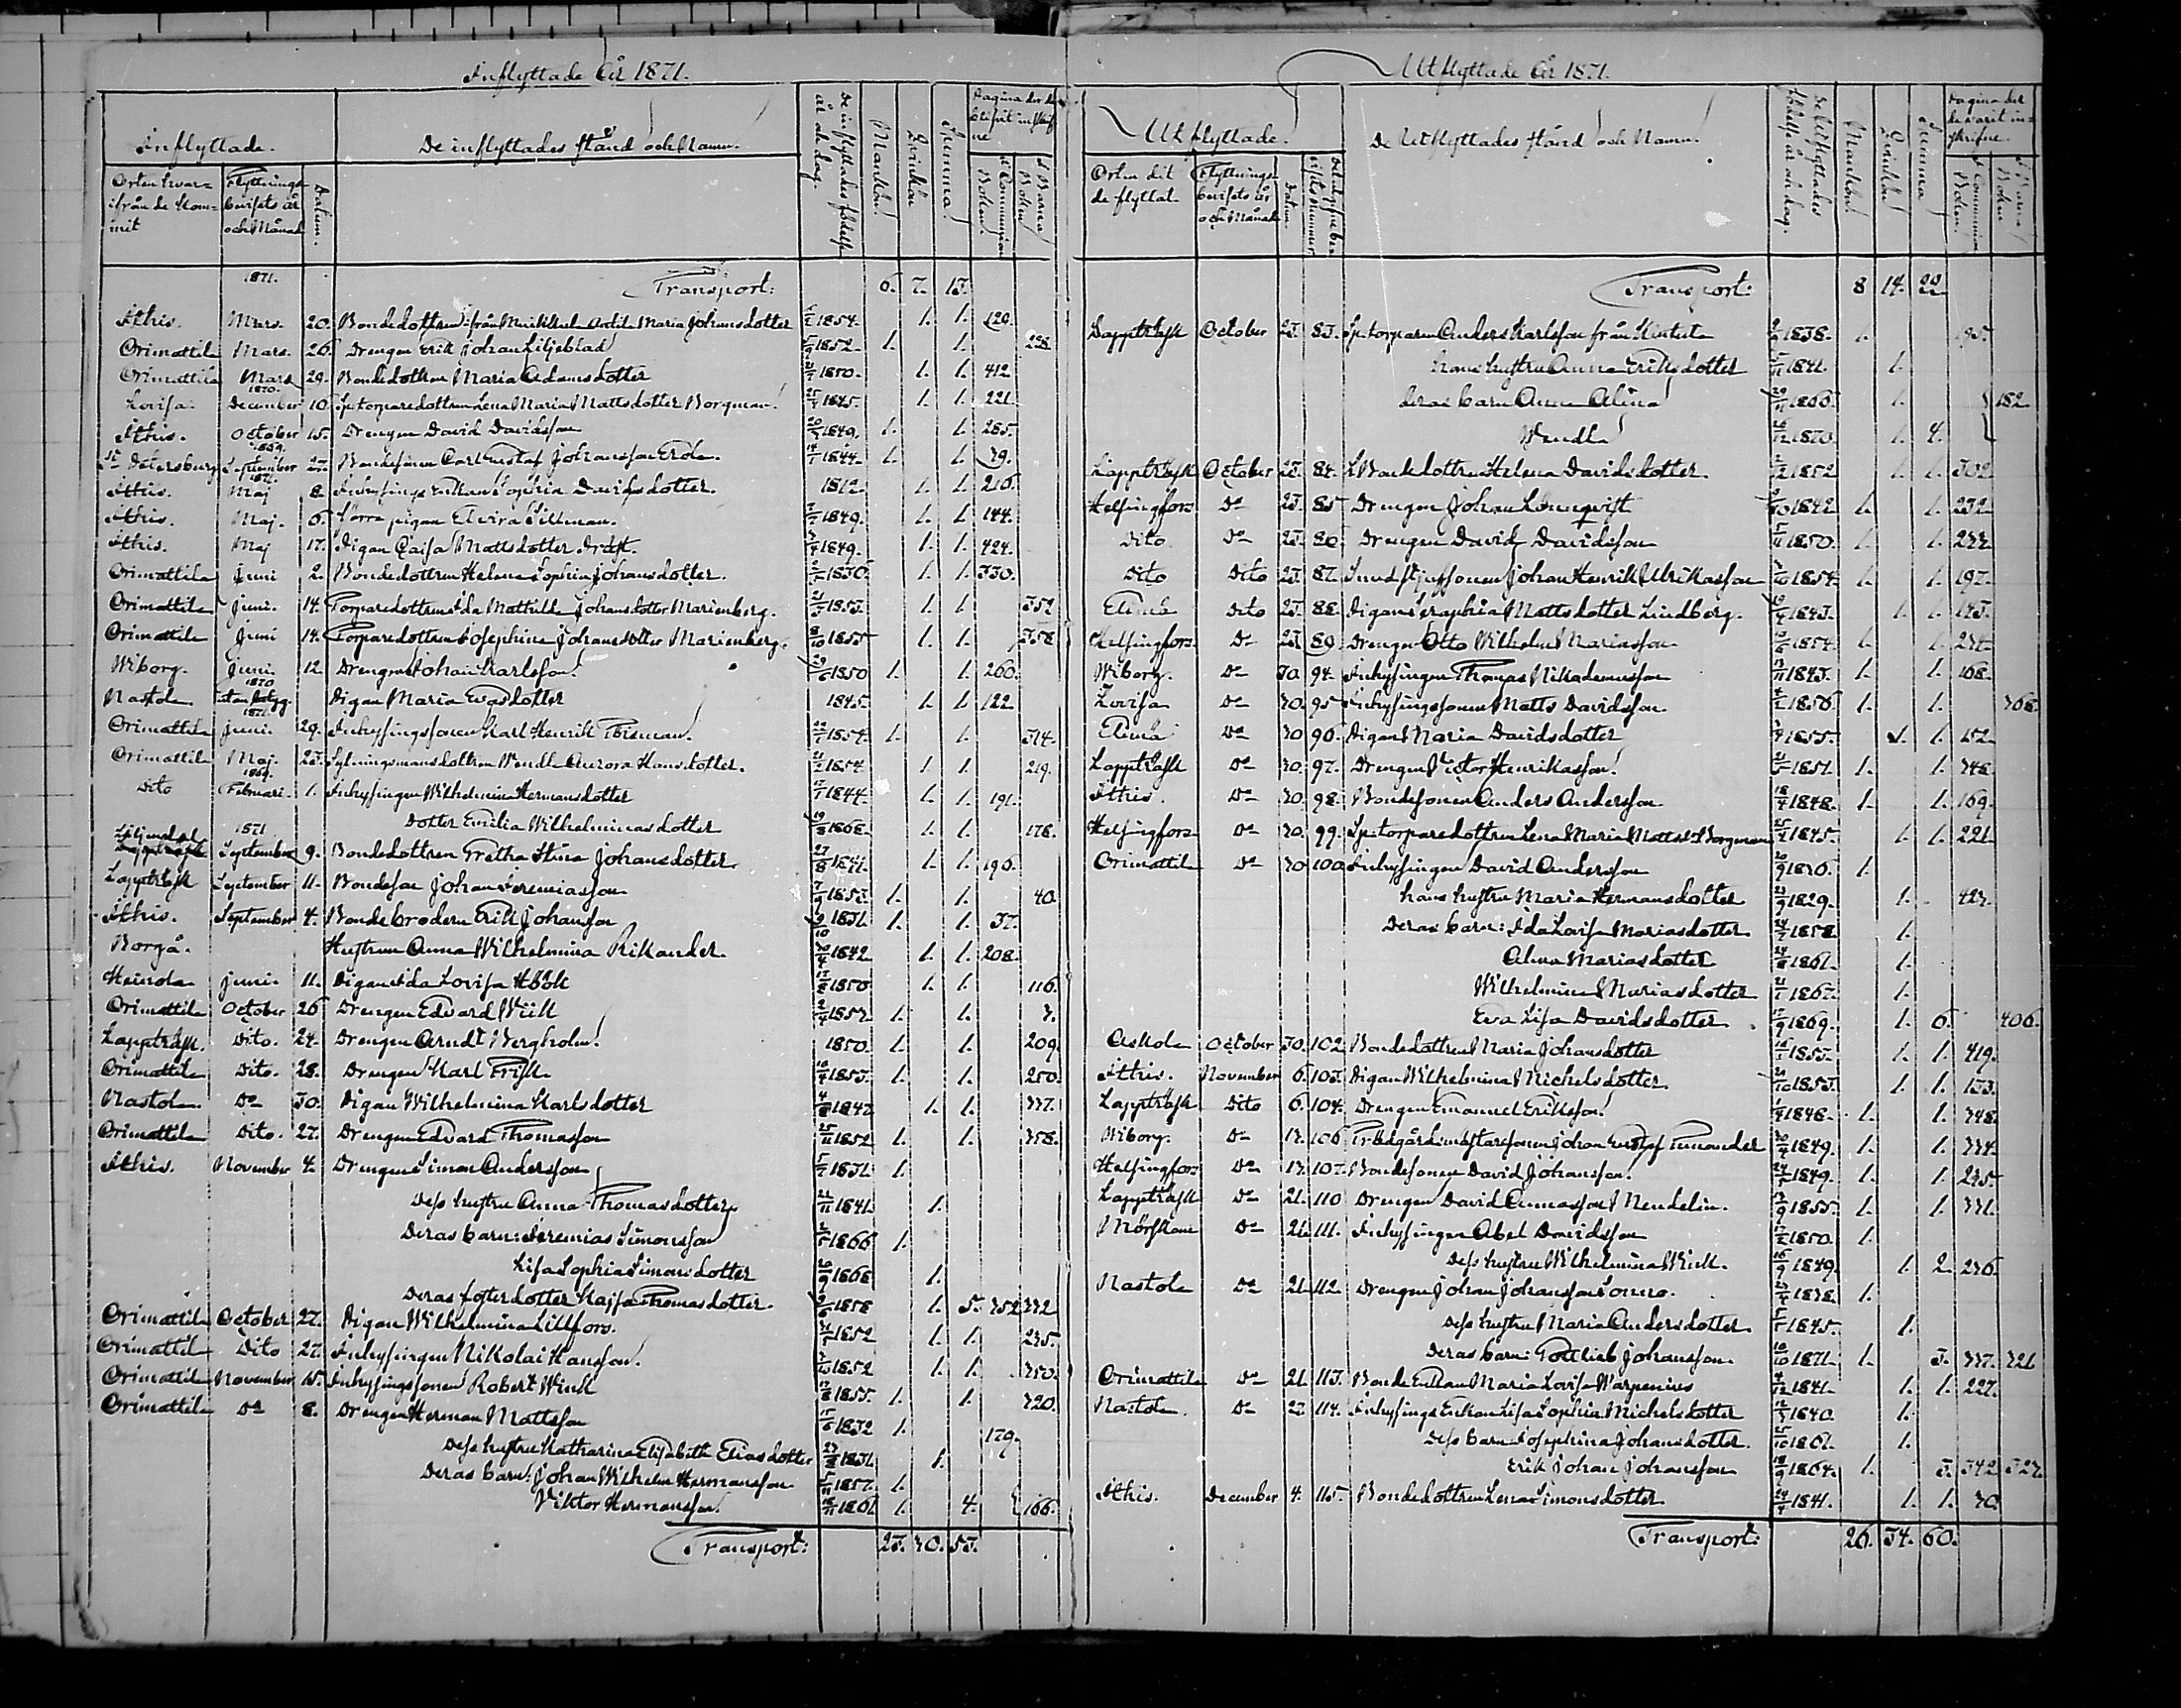 Inflyttade År 1871.
Inflyttade.
De inflyttades stånd och Namn.
De inflyttades födelse år och dag.
Mankön
Qvinkön
Summa
Orten hvarifrån de kommit
Flyttnings bevisets år och Månad
Datum.
1871. Transport: 6. 7. 13.
Ithis. Mars. 20. Bondedottren från Maria Johansdotter 1854. 1. 1. 120.
Orimattila Mars. 26. Drengen Erik Johan Liljeblad 1852. 1. 1.
Orimattila Mars 29. Bondedottren Maria Adamsdotter 1850. 1. 1. 412.
1870.
Lovisa. December 10. Sp. torparedottren Lena Maria Mattsdotter Borgman. 25/4 1845. 1. 1. 221.
Ithis. October 15. Drengen David Davidsson 1849. 1. 1. 285.
1869.
St Petersburg 27. Bondesonen Carl Gustaf Johansson Erola. 14/1 1844. 1. 1. 39.
1871.
Ithis. Maj 8. Inhysings Enkan Sophia Davidsdotter. 1812. 1. 1. 216.
Ithis. Maj. 6. pigan Elvira Sillman. 1849. 1. 1. 144.
Ithis. Maj 17. Pigan Caisa Mattsdotter 1849. 1. 1. 424.
Orimattila Juni 2. Bondedottren Helena Sophia Johansdotter. 1830. 1. 1. 330.
Orimattila Juni. 14. Torparedottren Ida Mathilda Johansdotter Marienberg. 1853. 1. 1. 352
Orimattila Juni 14. Torparedottren Josephina Johansdotter Marienberg. 8/10 1855 1. 1. 358
Wiborg. Juni. 12. Drengen Johan Karlsson. 29/6 1850 1. 1. 260.
1870
Nastola Pigan Maria Evasdotter 1845. 1. 1. 122
1871.
Orimattila Juni. 29. Inhysingssonen Karl Henrik 1854. 1. 1. 314.
Orimattila Maj. 23. dottren Wendla Aurora Hansdotter. 1854. 1. 1. 219.
1869.
Dito Februari. 1. Inhysingen Wilhelmina Hermansdotter 17/1 1844. 1. 1. 191.
Dotter Emilia Wilhelminasdotter 19/8 1868. 1. 1. 178.
1871
Liljendal September 9. Bondedottren Gretha Stina Johansdotter 27/8 1841. 1. 1. 190.
Lappträsk September 11. Bondeson Johan Jeremiasson 1853. 1. 1. 40.
Ithis. September 4. Bondebrodern Erik Johansson 9/10 1831. 1. 1. 37.
Borgå. Hustrun Anna Wilhelmina Rikander. 30/4 1842 1. 1. 208.
Heinola Juni. 11. Pigan Ida Lovisa Höök 1850 1. 1. 116.
Orimattila October 26 Drengen Edvard Wiik 2/4 1853 1. 1. 3.
Lappträsk. Dito. 24. Drengen Arndt Bergholm. 1850. 1. 1. 209
Orimattila Dito. 28. Drengen Karl Frisk. 1853. 1. 1. 250.
Nastola Do 30. Pigan Wilhelmina Karlsdotter 4/8 1847 1. 1. 337.
Orimattila Dito. 27. Drengen Edvard Thomasson 25/11 1852 1. 1. 358.
Ithis. November 4. Drengen Simon Andersson 1831. 1.
Dess hustru Anna Thomasdotter 1841. 1.
Deras barn: Jeremias Simonsson 1866 1.
Lisa Sophia Simonsdotter 20/9 1868 1.
Deras fosterdotter Kajsa Thomasdotter. 1858 1. 5. 352 332
Orimattila October 27. Pigan Wilhelmina Lillfors. 1852 1. 1. 235.
Orimattila Dito 27. Inhysingen Nikolai Hansson. 1852 1. 1. 350.
Orimattila November 15. Inhysingssonen Robert Wiik 1855. 1. 1. 320.
Orimattila Do 8. Drengen Herman Mattsson 1832 1.
Dess hustru Katharina Elisabeth Eliasdotter 1831. 1. 179.
Deras barn: Johan Wilhelm Hermansson 1857. 1.
Viktor Hermansson. 1861. 1. 4. 166.
Transport: 23. 30. 53.
Utflyttade År 1871.
Utflyttade.
De Utflyttades stånd och Namn.
De Utflyttades födelse år och dag.
Mankön
Qvinkön
Summa
Orten dit de flyttat
Flyttnings bevisets år och Månad
Datum
Transport: 8 14. 22
Lappträsk October 23. 83. Sp. torparen Anders Karlsson från 1838. 1. 195.
hans hustru Anna Eriksdotter 1841. 1.
deras barn Anna Alina 1.
Wendla 1870. 1. 4. 182
Lappträsk October 23. 84. Bondedottren Helena Davidsdotter. 1852 1. 1. 302
Helsingfors Do 23. 85 Drengen Johan Lönnqvist 1842 1. 1. 232.
Dito Do 23. 86. Drengen David Davidsson 5/11 1850. 1. 1.
Dito Dito 23. 87. Johan Henrik Ulrikasson 1854. 1. 1. 197.
Elimä Dito 23. 88. Pigan Seraphia Mattsdotter Lindberg. 1843. 1. 1. 143.
Helsingfors. Do 23. 89. Drengen Otto Wilhelm Mariasson 1854. 1. 1. 234.
Wiborg. Do 30. 94. Inhysingen Thomas Nikodemusson 1843. 1. 1. 108.
Lovisa Do 30. 95 Inhysingssonen Matts Davidsson. 1856. 1. 1. 368.
Elimä Do 30 96. Pigan Maria Davidsdotter 1855. 1. 1. 152.
Lappträsk Do 30. 97. Drengen Victor Henriksson. 1851. 1. 1. 348.
Ithis. Do 30. 98. Bondesonen Anders Andersson 18/4 1848. 1. 1. 169.
Helsingfors Do 30. 99. Sp. torparedottren Lena Maria Mattsd:r Borgman 25/4 1845. 1. 1. 221.
Orimattila Do 30 100 Inhysingen David Andersson 1830. 1.
hans hustru Maria Hermansdotter 23/9 1829. 1. 423.
Deras barn: Ida Lovisa Mariasdotter 1858 1.
Alma Mariasdotter 1861. 1.
Wilhelmina Mariasdotter 1867. 1.
Eva Lisa Davidsdotter 1869. 1. 6. 406.
Askola October 30. 102 Bondedottren Maria Johansdotter 1855. 1. 1. 419.
Ithis. November 6. 103. Pigan Wilhelmina Michelsdotter. 21/10 1853. 1. 1. 133.
Lappträsk Dito 6. 104. Drengen Emanuel Eriksson. 1848. 1. 1. 348.
Wiborg. Do 13. 106 Trädgårdsmästaresonen Johan Gustaf 30/4 1849. 1. 1. 334.
Helsingfors Do 13. 107. Bondesonen David Johansson. 1849. 1. 1. 235.
Lappträsk Do 21. 110 Drengen David Annasson Nendelin. 1855. 1. 1. 331.
Mörskom Do 21. 111. Inhysingen Abel Davidsson 1850. 1.
Dess hustru Wilhelmina Wiik. 16/9 1849. 1. 2. 236.
Nastola Do 21. 112. Drengen Johan Johansson 1838. 1.
Dess hustru Maria Andersdotter 1845. 1.
Deras barn: Gottlieb Johansson. 10/10 1871. 1. 3. 337. 321
Orimattila Do 21. 113. Bonde Enkan Maria Lovisa Warpenius 4/12 1841. 1. 1. 227.
Nastola. Do 27. 114. Inhysings Enkan Lisa Sophia Michelsdotter 1840. 1.
Dess barn Josephina Johansdotter. 1861. 1.
Erik Johan Johansson 18/9 1864. 1. 3. 342 327.
Ithis. December 4. 115. Bondedottren Lena Simonsdotter 1841. 1. 1. 30.
Transport: 26. 34. 60.